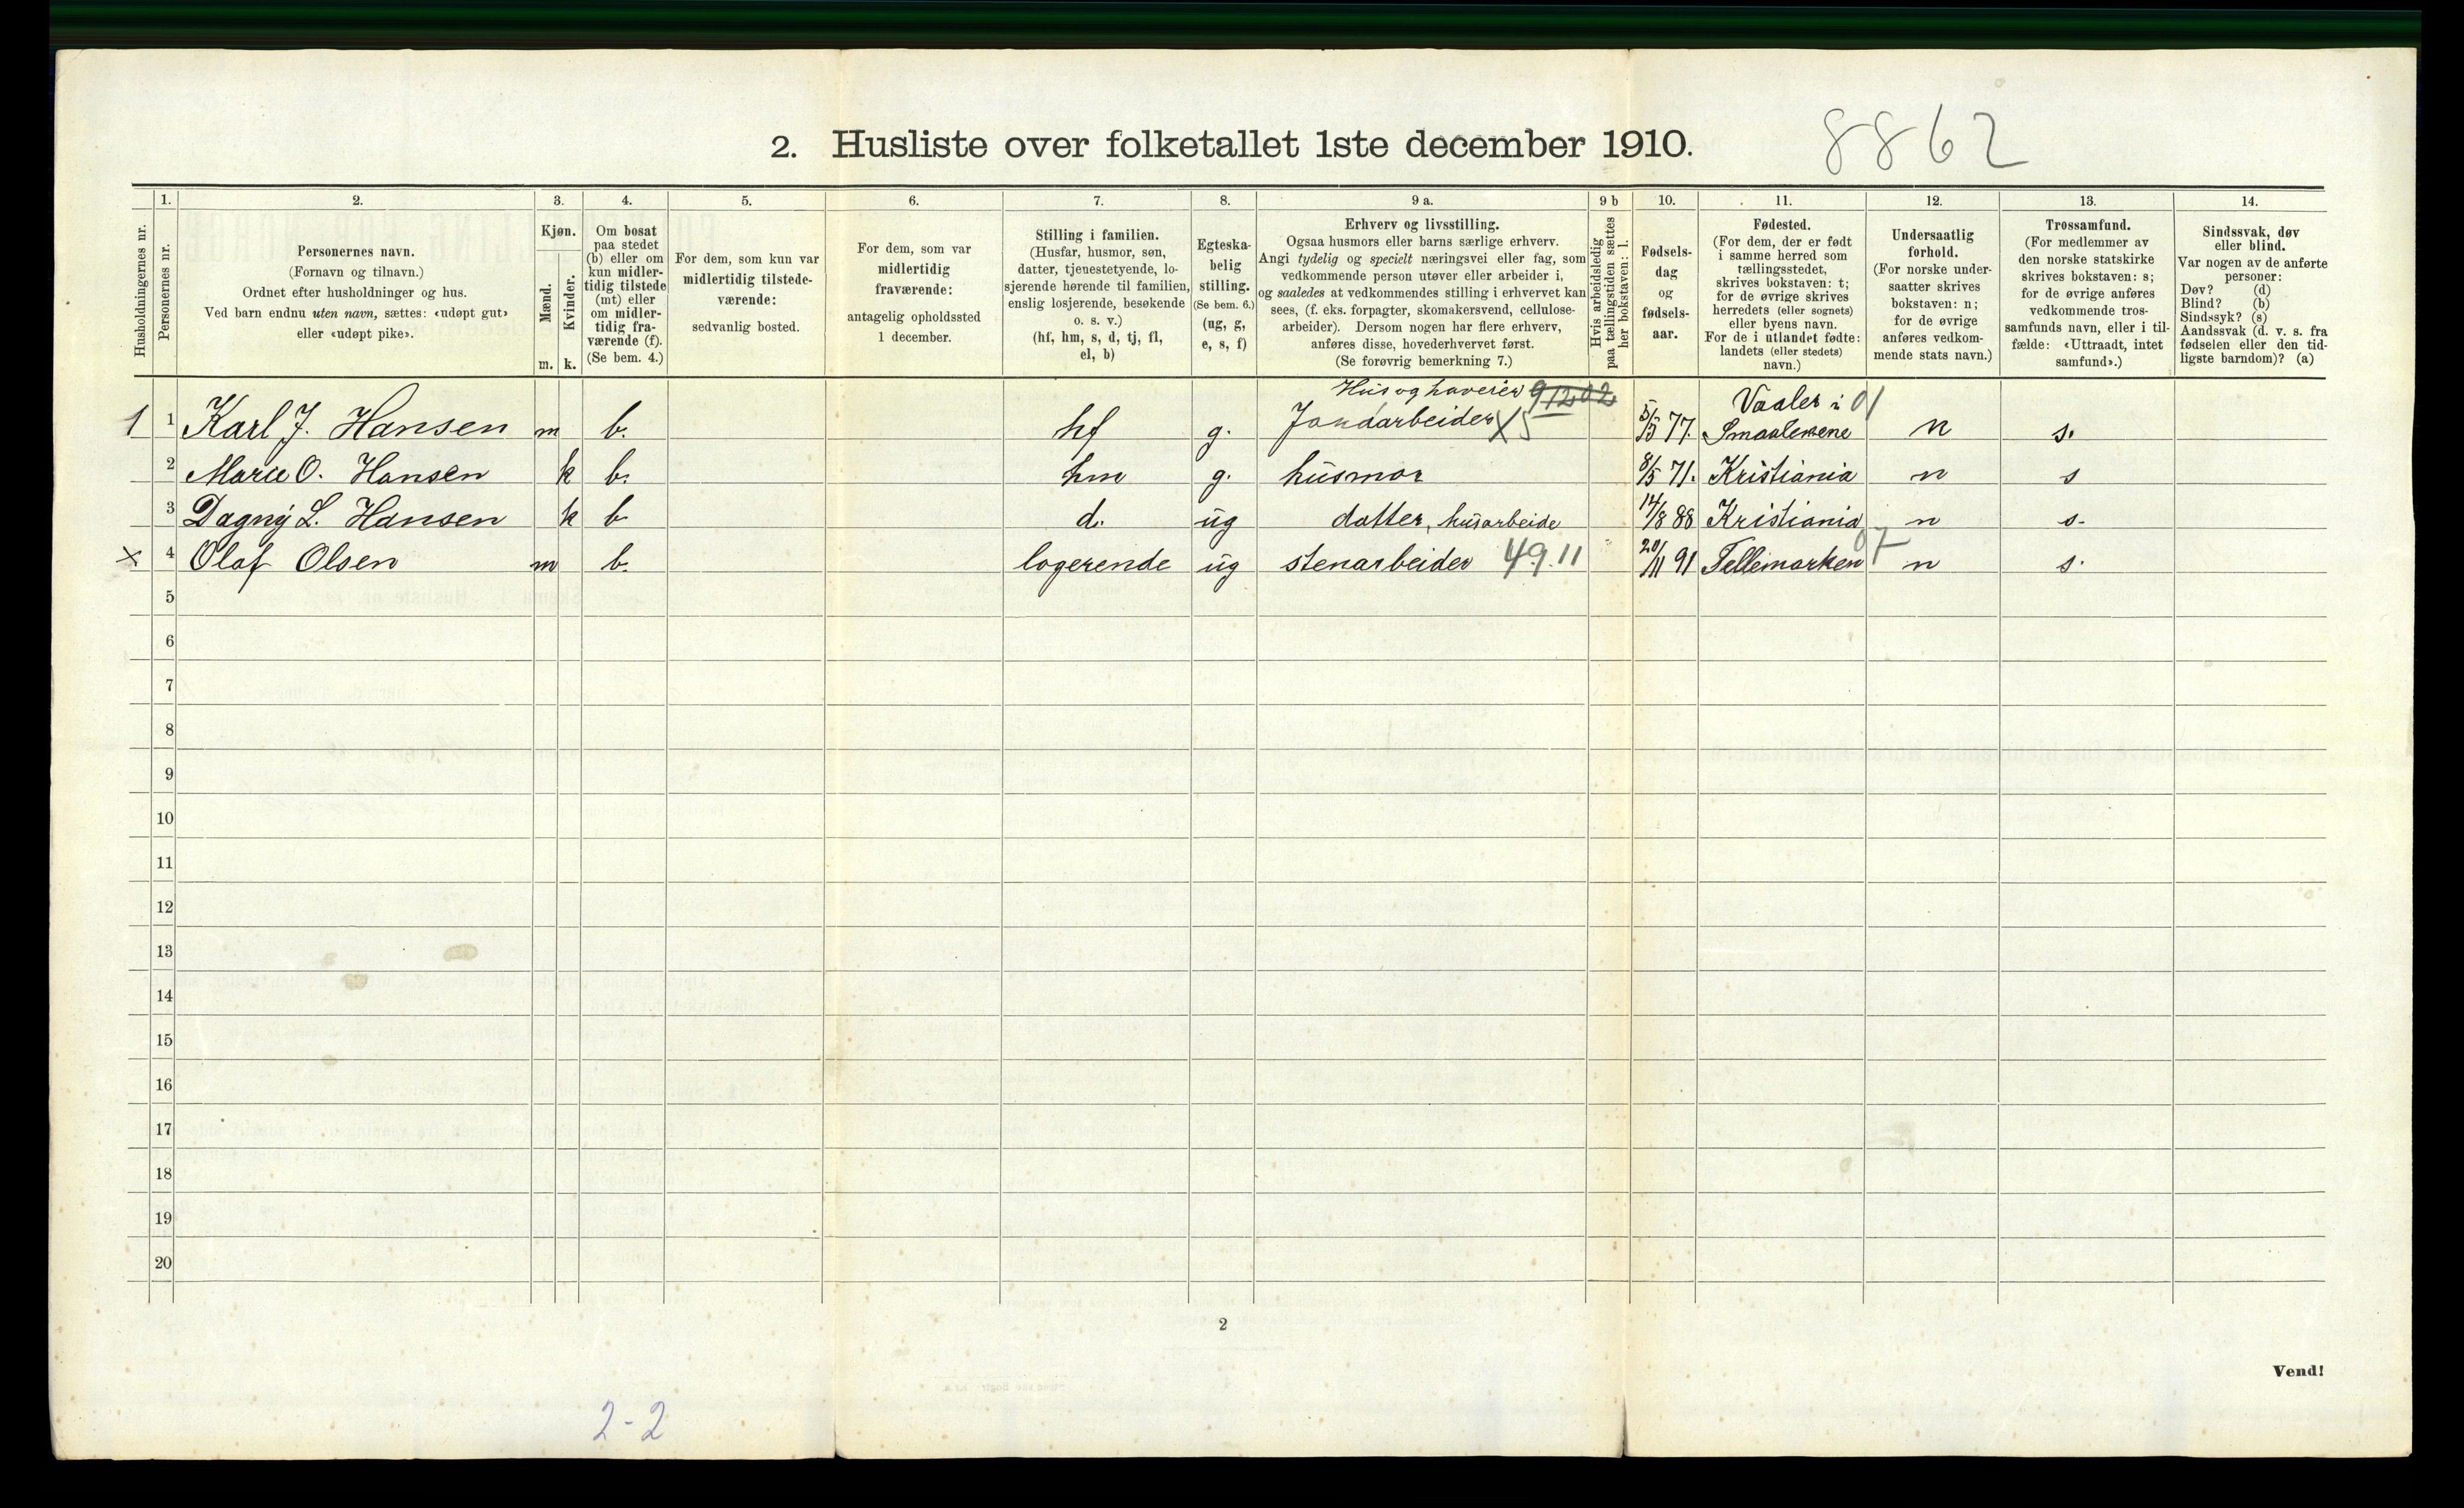 2. Husliste over folketallet 1ste december 1910.
8862
Husholdningernes nr.
1.
Personernes nr.
2.
Personernes navn.
(Fornavn og tilnavn.)
Ordnet efter husholdninger og hus.
Ved barn endnu uten navn, sættes: «udøpt gut»
eller «udøpt pike».
3.
Kjøn.
Mænd.
m.
Kvinder.
k.
4.
Om bosat
paa stedet
(b) eller om
kun midler-
tidig tilstede
(mt) eller
om midler-
tidig fra-
værende (f).
(Se bem. 4.)
5.
For dem, som kun var
midlertidig tilstede-
værende:
sedvanlig bosted.
6.
For dem, som var
midlertidig
fraværende:
antagelig opholdssted
1 december.
7.
Stilling i familien.
(Husfar, husmor, søn,
datter, tjenestetyende, lo-
sjerende hørende til familien,
enslig losjerende, besøkende
o. s. v.)
(hf, hm, s, d, tj, fl,
el, b)
8.
Egteska-
belig
stilling.
(Se bem. 6.)
(ug, g,
e, s, f)
9 a.
Erhverv og livsstilling.
Ogsaa husmors eller barns særlige erhverv.
Angi tydelig og specielt næringsvei eller fag, som
vedkommende person utøver eller arbeider i,
og saaledes at vedkommendes stilling i erhvervet kan
sees, (f. eks. forpagter, skomakersvend, cellulose-
arbeider). Dersom nogen har flere erhverv,
anføres disse, hovederhvervet først.
(Se forøvrig bemerkning 7.)
9 b
Hvis arbeidsledig
paa tællingstiden sættes
her bokstaven: l.
10.
Fødsels-
dag
og
fødsels-
aar.
11.
Fødested.
(For dem, der er født
i samme herred som
tællingsstedet,
skrives bokstaven: t;
for de øvrige skrives
herredets (eller sognets)
eller byens navn.
For de i utlandet fødte:
landets (eller stedets)
navn.)
12.
Undersaatlig
forhold.
(For norske under-
saatter skrives
bokstaven: n;
for de øvrige
anføres vedkom-
mende stats navn.)
13.
Trossamfund.
(For medlemmer av
den norske statskirke
skrives bokstaven: s;
for de øvrige anføres
vedkommende tros-
samfunds navn, eller i til-
fælde: «Uttraadt, intet
samfund».)
14.
Sindssvak, døv
eller blind.
Var nogen av de anførte
personer:
Døv? (d)
Blind? (b)
Sindssyk? (s)
Aandssvak (d. v. s. fra
fødselen eller den tid-
ligste barndom)? (a)
Hus og haveeier 91202 Vaaler i 01
1 1 Karl J. Hansen m b. hf g. Jordarbeider X5 5/5 77. Smaalenene n s.
2 Marie O. Hansen k b. hm g. husmor 8/5 71. Kristiania n s
3 Dagny L. Hansen k b d. ug datter, husarbeide 14/8 88 Kristiania n s.
x 4 Olaf Olsen m b. logerende ug stenarbeider 49.11 20/11 91 Tellemarken 07 n s.
5
6
7
8
9
10
11
12
13
14
15
16
17
18
19
20
2
Vend!
2-2